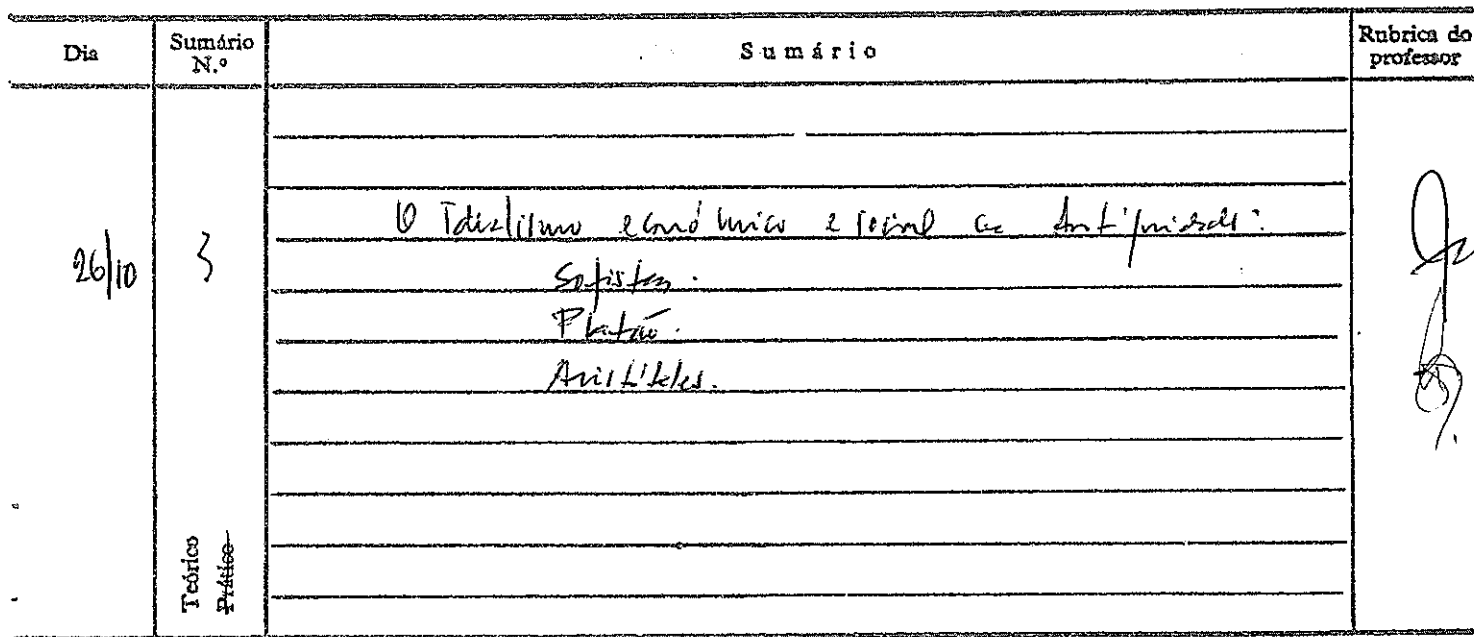 Dia
Sumário N.º
Sumário
Rubrica do professor
26/10
3
O Idealismo económico e social na Antiguidade:
Sofistas.
Platão.
Aristóteles.
Teórico
Prático